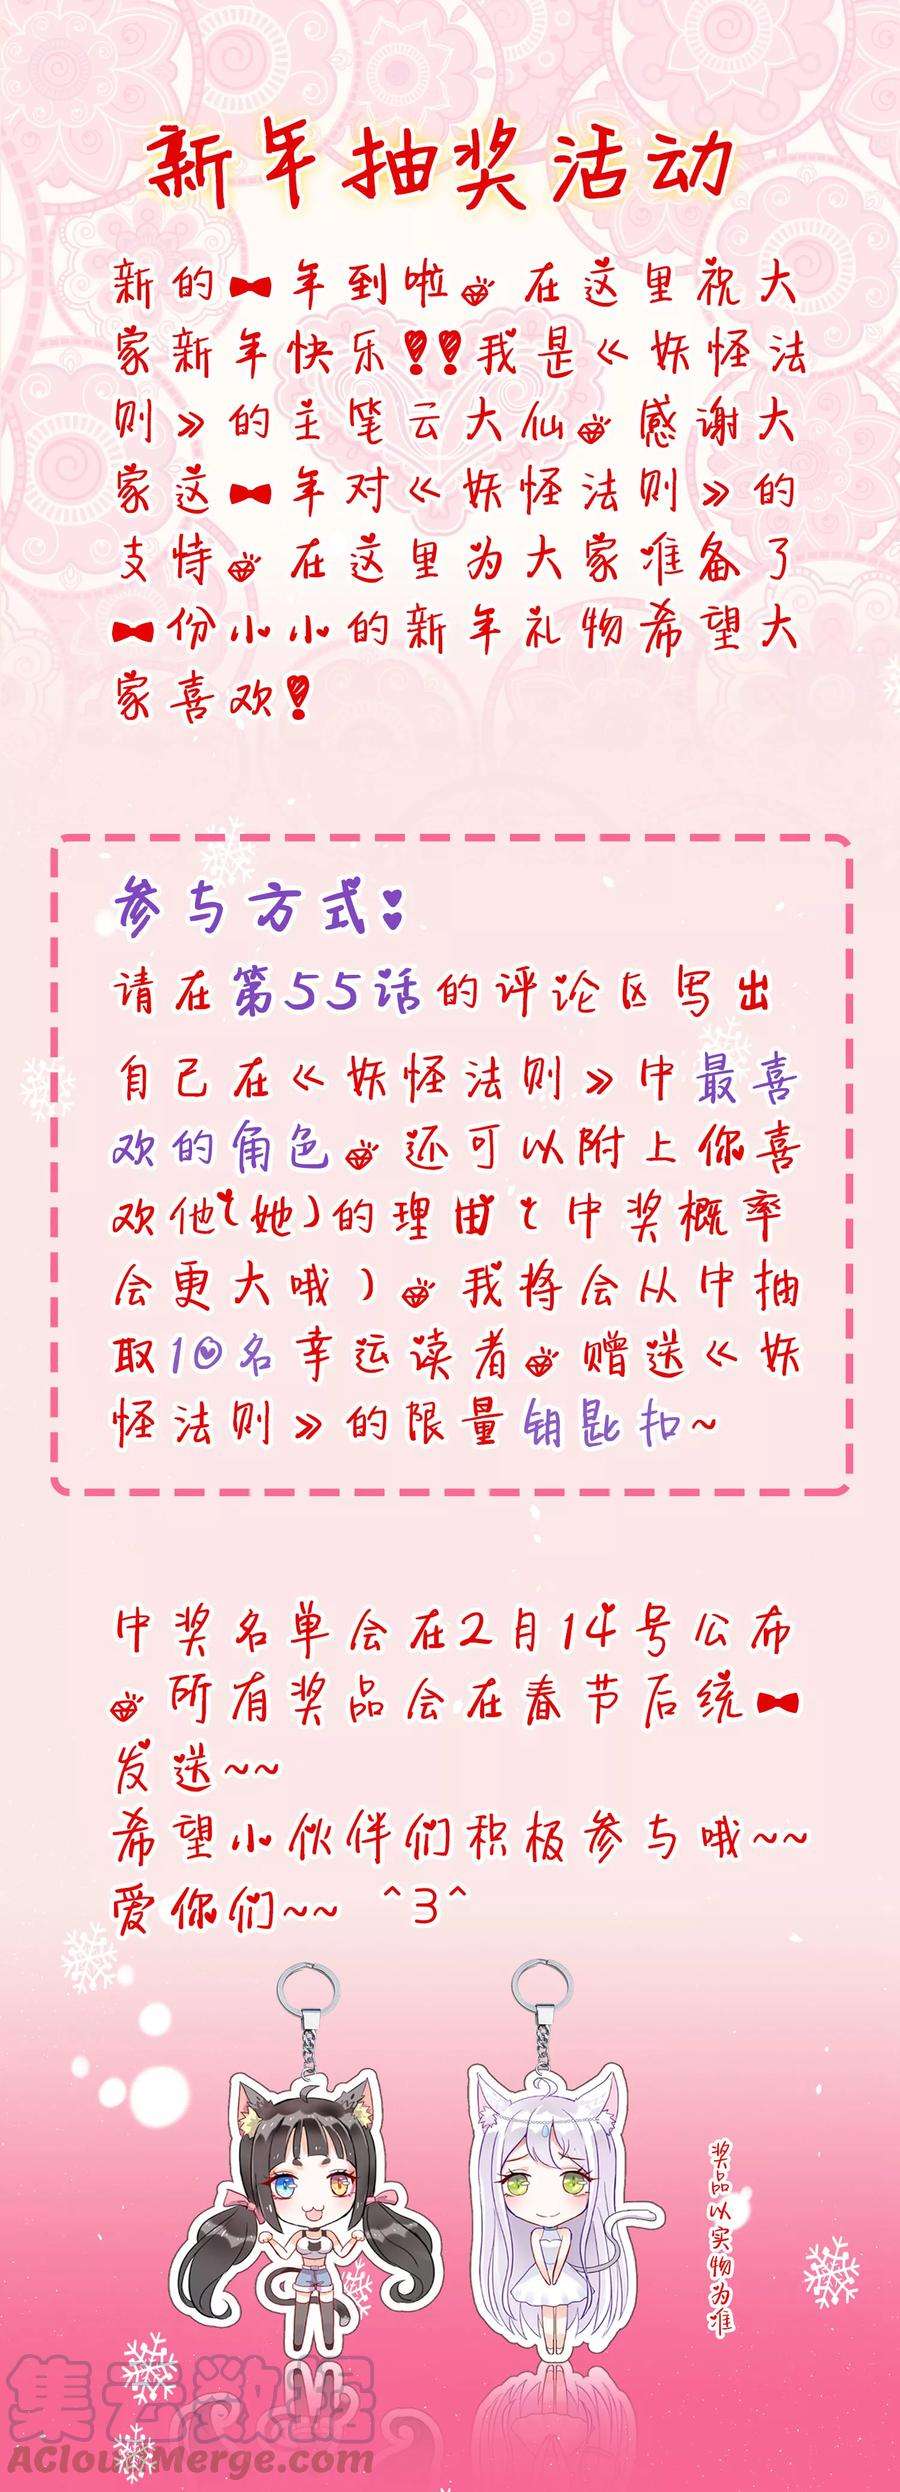 新年抽奖活动
新的一年到啦。在这里祝大
家新年快乐!!我是《妖怪法
则》的主笔云大仙。感谢大
家这一年对《妖怪法则》的
支恃。在这里为大家准备了
一份小小的新年礼物希望大
家喜欢!
参与方式:
请在第55话的评论区写出
自己在《妖怪法则》中最喜
欢的角色。还可以附上你喜
欢他(她)的理由(中奖概率
会更大哦)。我将会从中抽
取10名幸运读者。赠送《妖
怪法则》的限量钥匙扣~
中奖名单会在2月14号公布
。所有奖品会在春节后统一
发送~~
希望小伙伴们积极参与哦~~
爱你们~~ ^3^
奖品以实物为准
集云数据
ACloudMerge.com